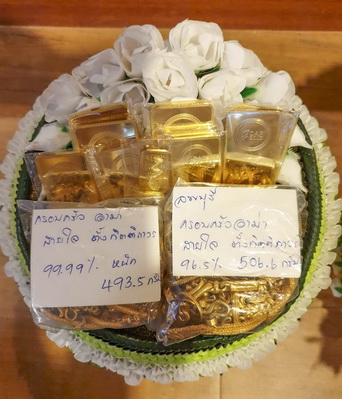 ครอบครัว อาม่า
สายใจ ตั้งกิตติถาวร
99.99% หนัก
493.5 กรัม
ลพบุรี
ครอบครัวอาม่า
สายใจ ตั้งกิตติถาวร
96.5% 506.6 กรัม